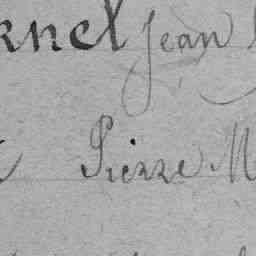 rnel Jean
Pierre M